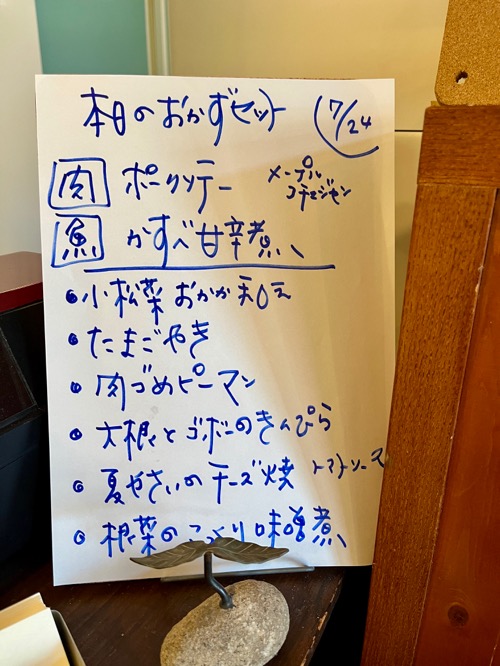 本日のおかずセット 7/24
肉 ポークソテー メープル
コチュジャン
魚 かすべ甘辛煮
・小松菜おかか和え
・たまごやき
・肉づめピーマン
・大根とゴボーのきんぴら
・夏やさいのチーズ焼 トマトソース
・根菜のこっくり味噌煮